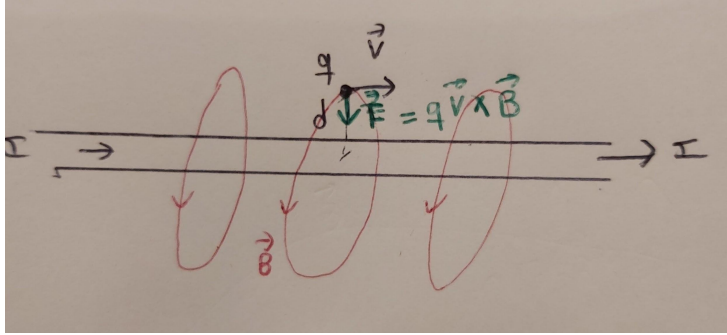 q V⃗
d F⃗ = q V⃗ × B⃗
I I
B⃗